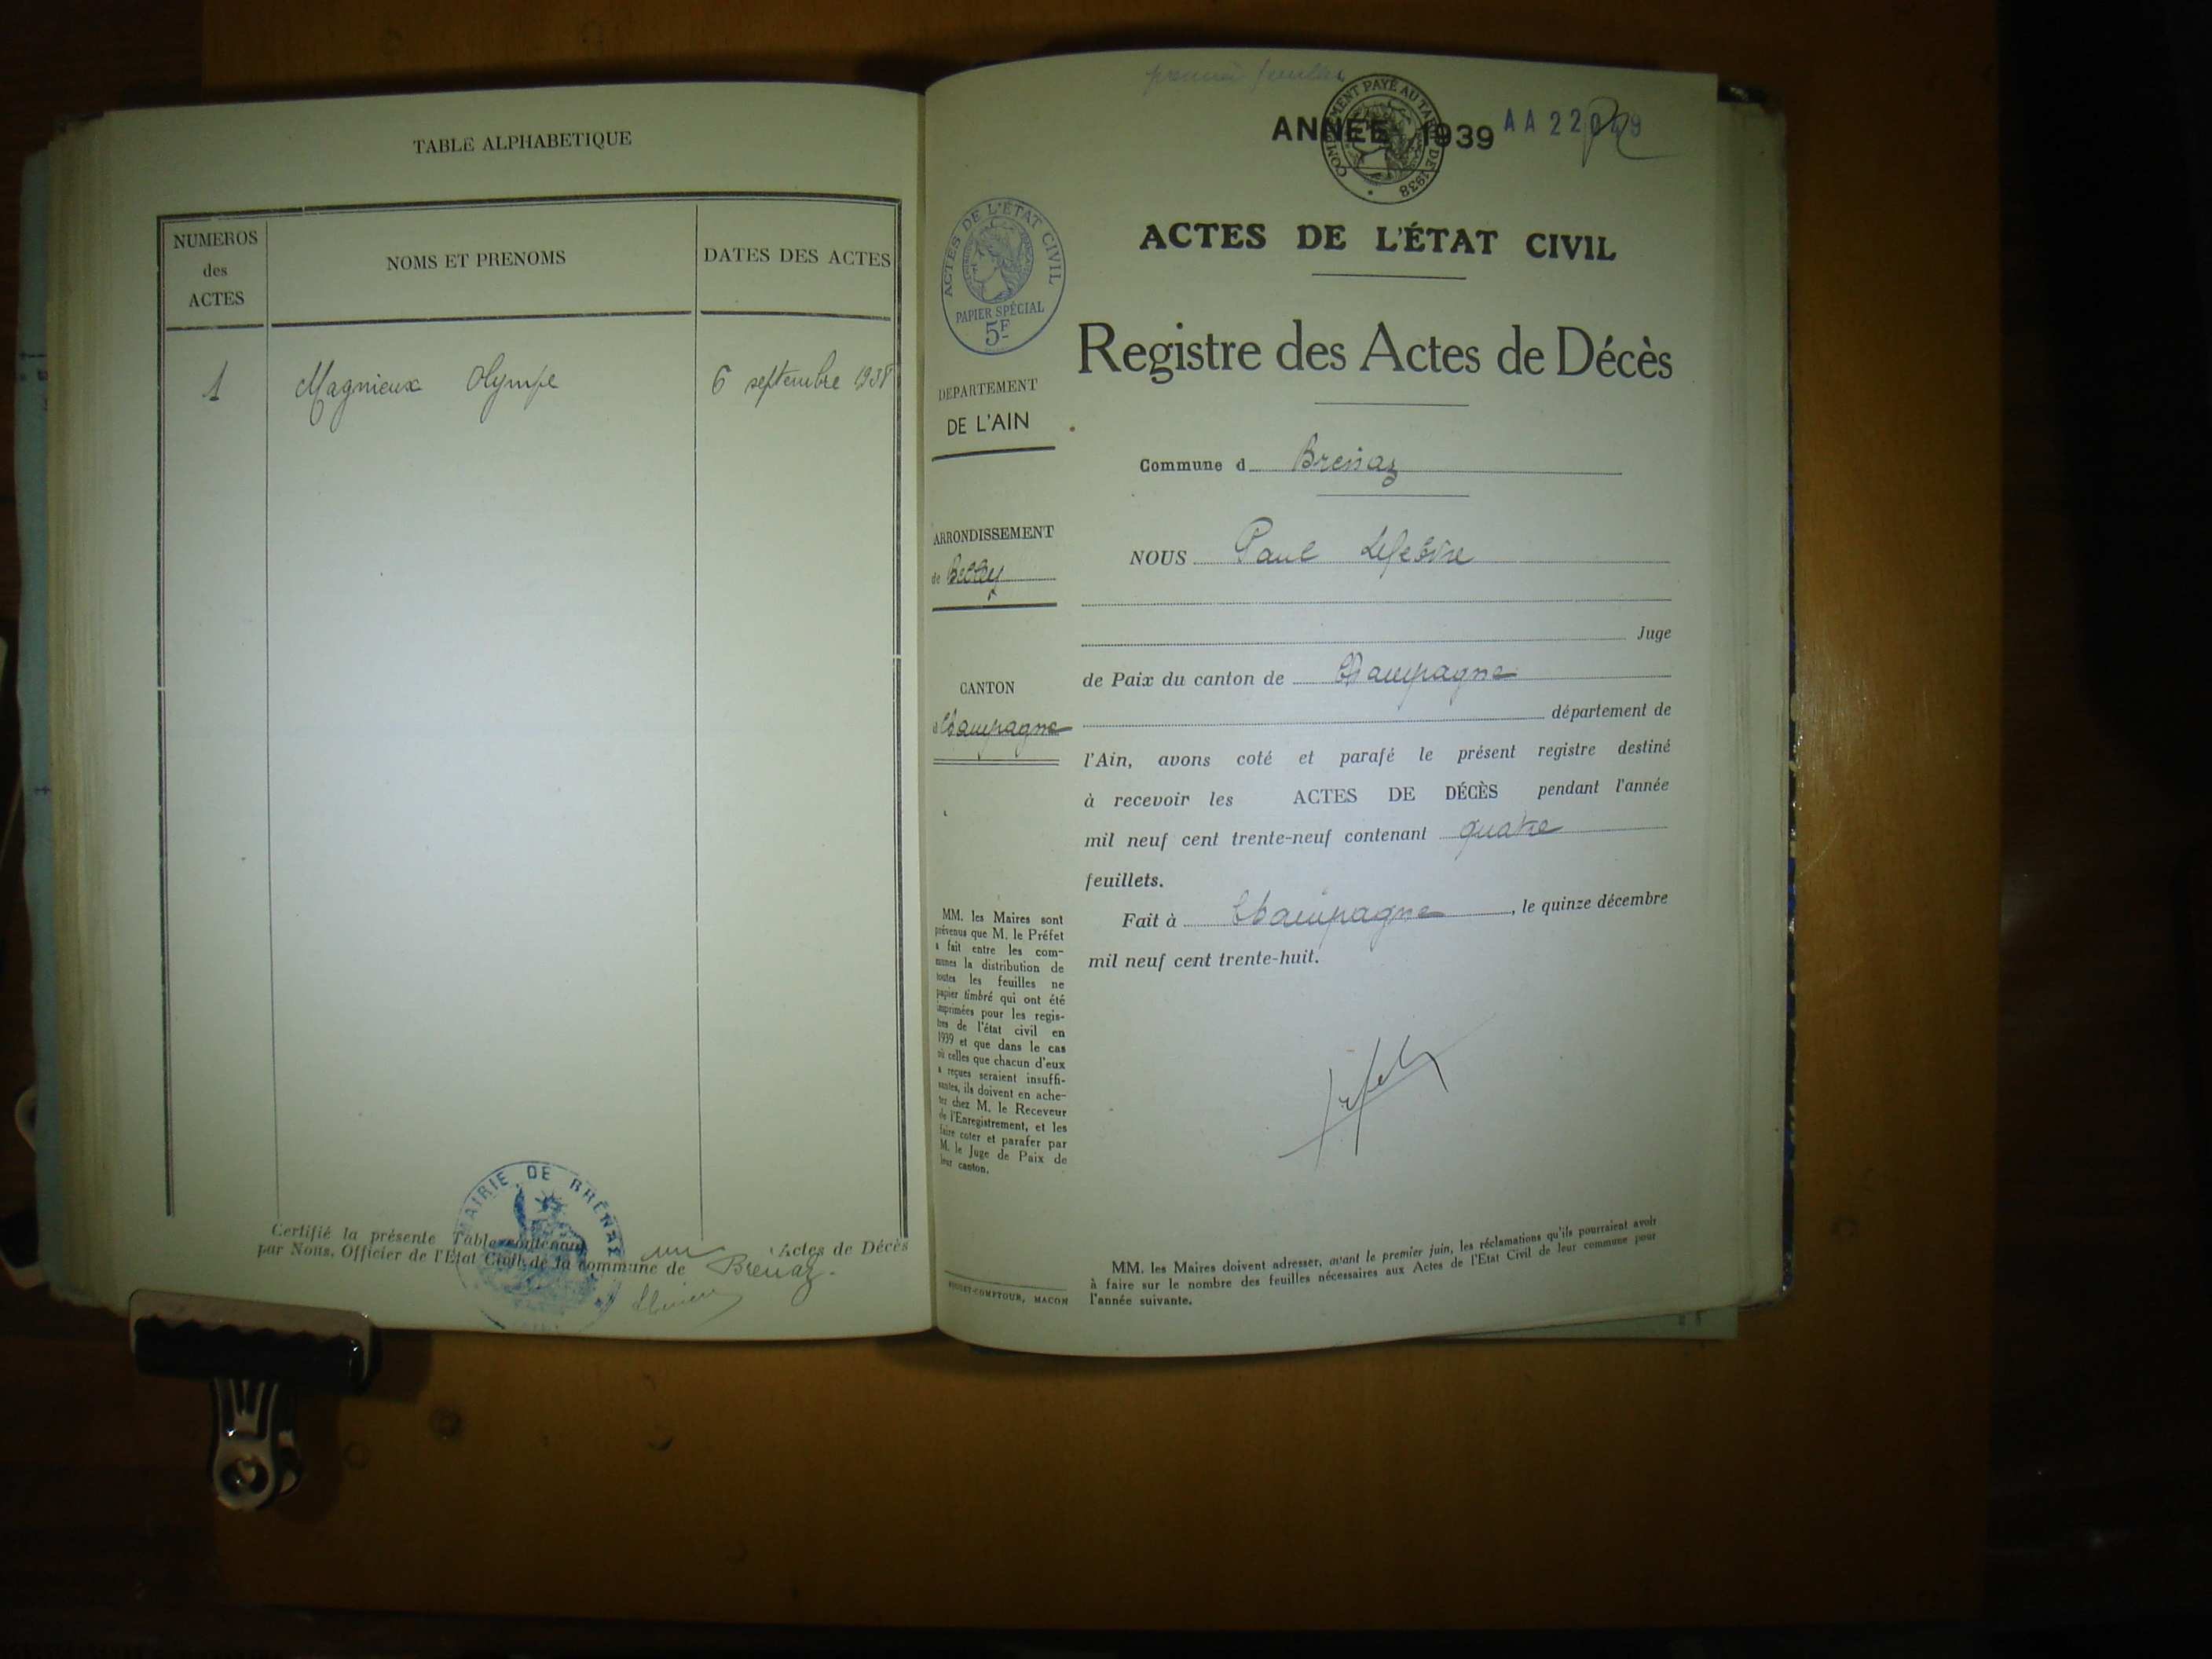 TABLE ALPHABETIQUE
NUMEROS
des
ACTES
NOMS ET PRENOMS
DATES DES ACTES
1 Magnieux Olympe 6 septembre 1938
Certifié la présente Table contenant un Actes de Décès
par Nous, Officier de l'Etat Civil de la commune de Brenaz.
MAIRIE DE BRÉNAZ
premier feuillet
ANNEE 1939
COMPLEMENT PAYÉ AU TARIF DE 1938
AA 22
ACTES DE L'ÉTAT CIVIL
PAPIER SPÉCIAL
5F
ACTES DE L'ÉTAT CIVIL
Registre des Actes de Décès
DEPARTEMENT
DE L'AIN
Commune d Brenaz
ARRONDISSEMENT
de Belley
NOUS Paul Lefebvre
Juge
de Paix du canton de Champagne
CANTON
d Champagne
département de
l'Ain, avons coté et parafé le présent registre destiné
à recevoir les ACTES DE DÉCÈS pendant l'année
mil neuf cent trente-neuf contenant quatre
feuillets.
Fait à Champagne, le quinze décembre
mil neuf cent trente-huit.
MM. les Maires sont
prévenus que M. le Préfet
a fait entre les com-
munes la distribution de
toutes les feuilles ne
papier timbré qui ont été
imprimées pour les regis-
tres de l'état civil en
1939 et que dans le cas
où celles que chacun d'eux
a reçues seraient insuffi-
santes, ils doivent en ache-
ter chez M. le Receveur
de l'Enregistrement, et les
faire coter et parafer par
M. le Juge de Paix de
leur canton.
COMPTOUR, MACON
MM. les Maires doivent adresser, avant le premier juin, les réclamations qu'ils pourraient avoir
à faire sur le nombre des feuilles nécessaires aux Actes de l'Etat Civil de leur commune pour
l'année suivante.